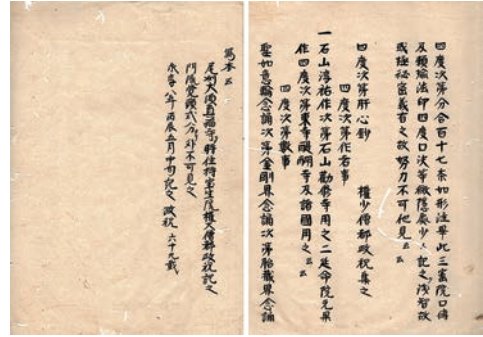 四度次第分合百十七条如形注畢此三宝院口傳
及頼瑜法印四度口决等幽隠處少々記之浅智故
或極秘密義有之故努力不可他見云云
四度次第肝心鈔 權少僧都政祝集之
四度次第作者事
一石山淳祐作次第石山勸修寺用之二延命院元杲
作四度次第東寺醍醐寺及諸國用之云云
四度次第數事
聖如意輪念誦次第金剛界念誦次第胎藏界念誦
写本云
尾州大須真福寺時住持常住院權大僧都政祝記之
門徒覚頭弍分外不可見之
永享八年丙辰五月中旬記之 政祝六十九歳